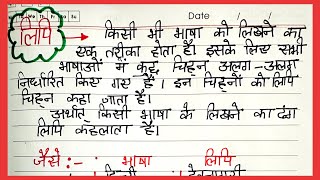 Date
लिपि → किसी भी भाषा को लिखने का
एक तरीका होता है। इसके लिए सभी
भाषाओं में कुछ चिह्न अलग-अलग
निर्धारित किए गए हैं। इन चिह्नों को लिपि
चिह्न कहा जाता है।
अर्थात् किसी भाषा के लिखने का ढंग
लिपि कहलाता है।
जैसे:- भाषा लिपि